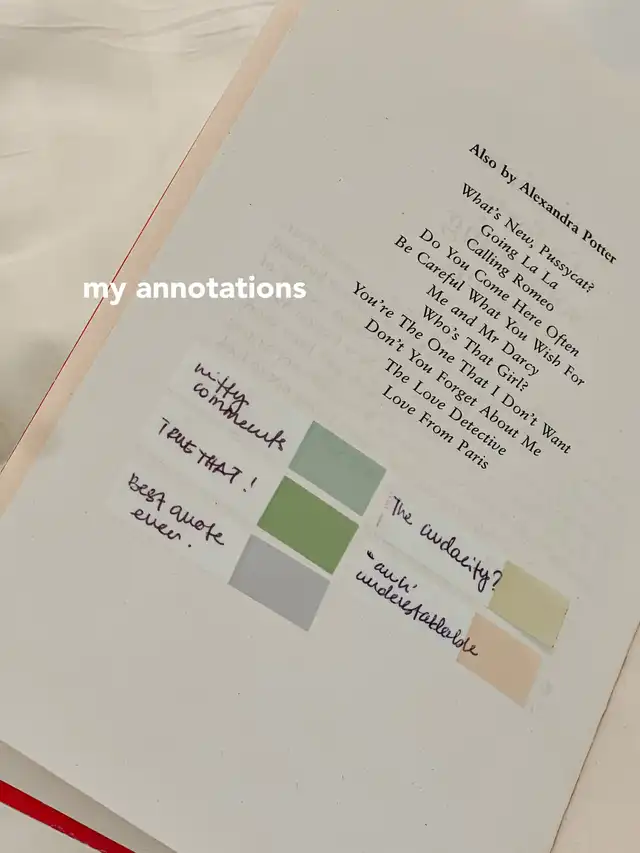 my annotations
Also by Alexandra Potter
What's New, Pussycat?
Going La La
Calling Romeo
Do You Come Here Often
Be Careful What You Wish For
Me and Mr Darcy
Who's That Girl?
You're The One That I Don't Want
Don't You Forget About Me
The Love Detective
Love From Paris
witty
comments
TRUE THAT!
Best quote
ever!
The audacity?